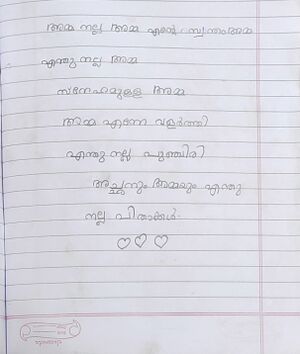 അമ്മ നല്ല അമ്മ എന്റെ സ്വന്തം അമ്മ
എന്തു നല്ല അമ്മ
സ്നേഹമുള്ള അമ്മ
അമ്മ എന്നെ വളർത്തി
എന്തു നല്ല പുഞ്ചിരി
അച്ഛനും അമ്മയും എന്തു
നല്ല പിതാക്കൾ